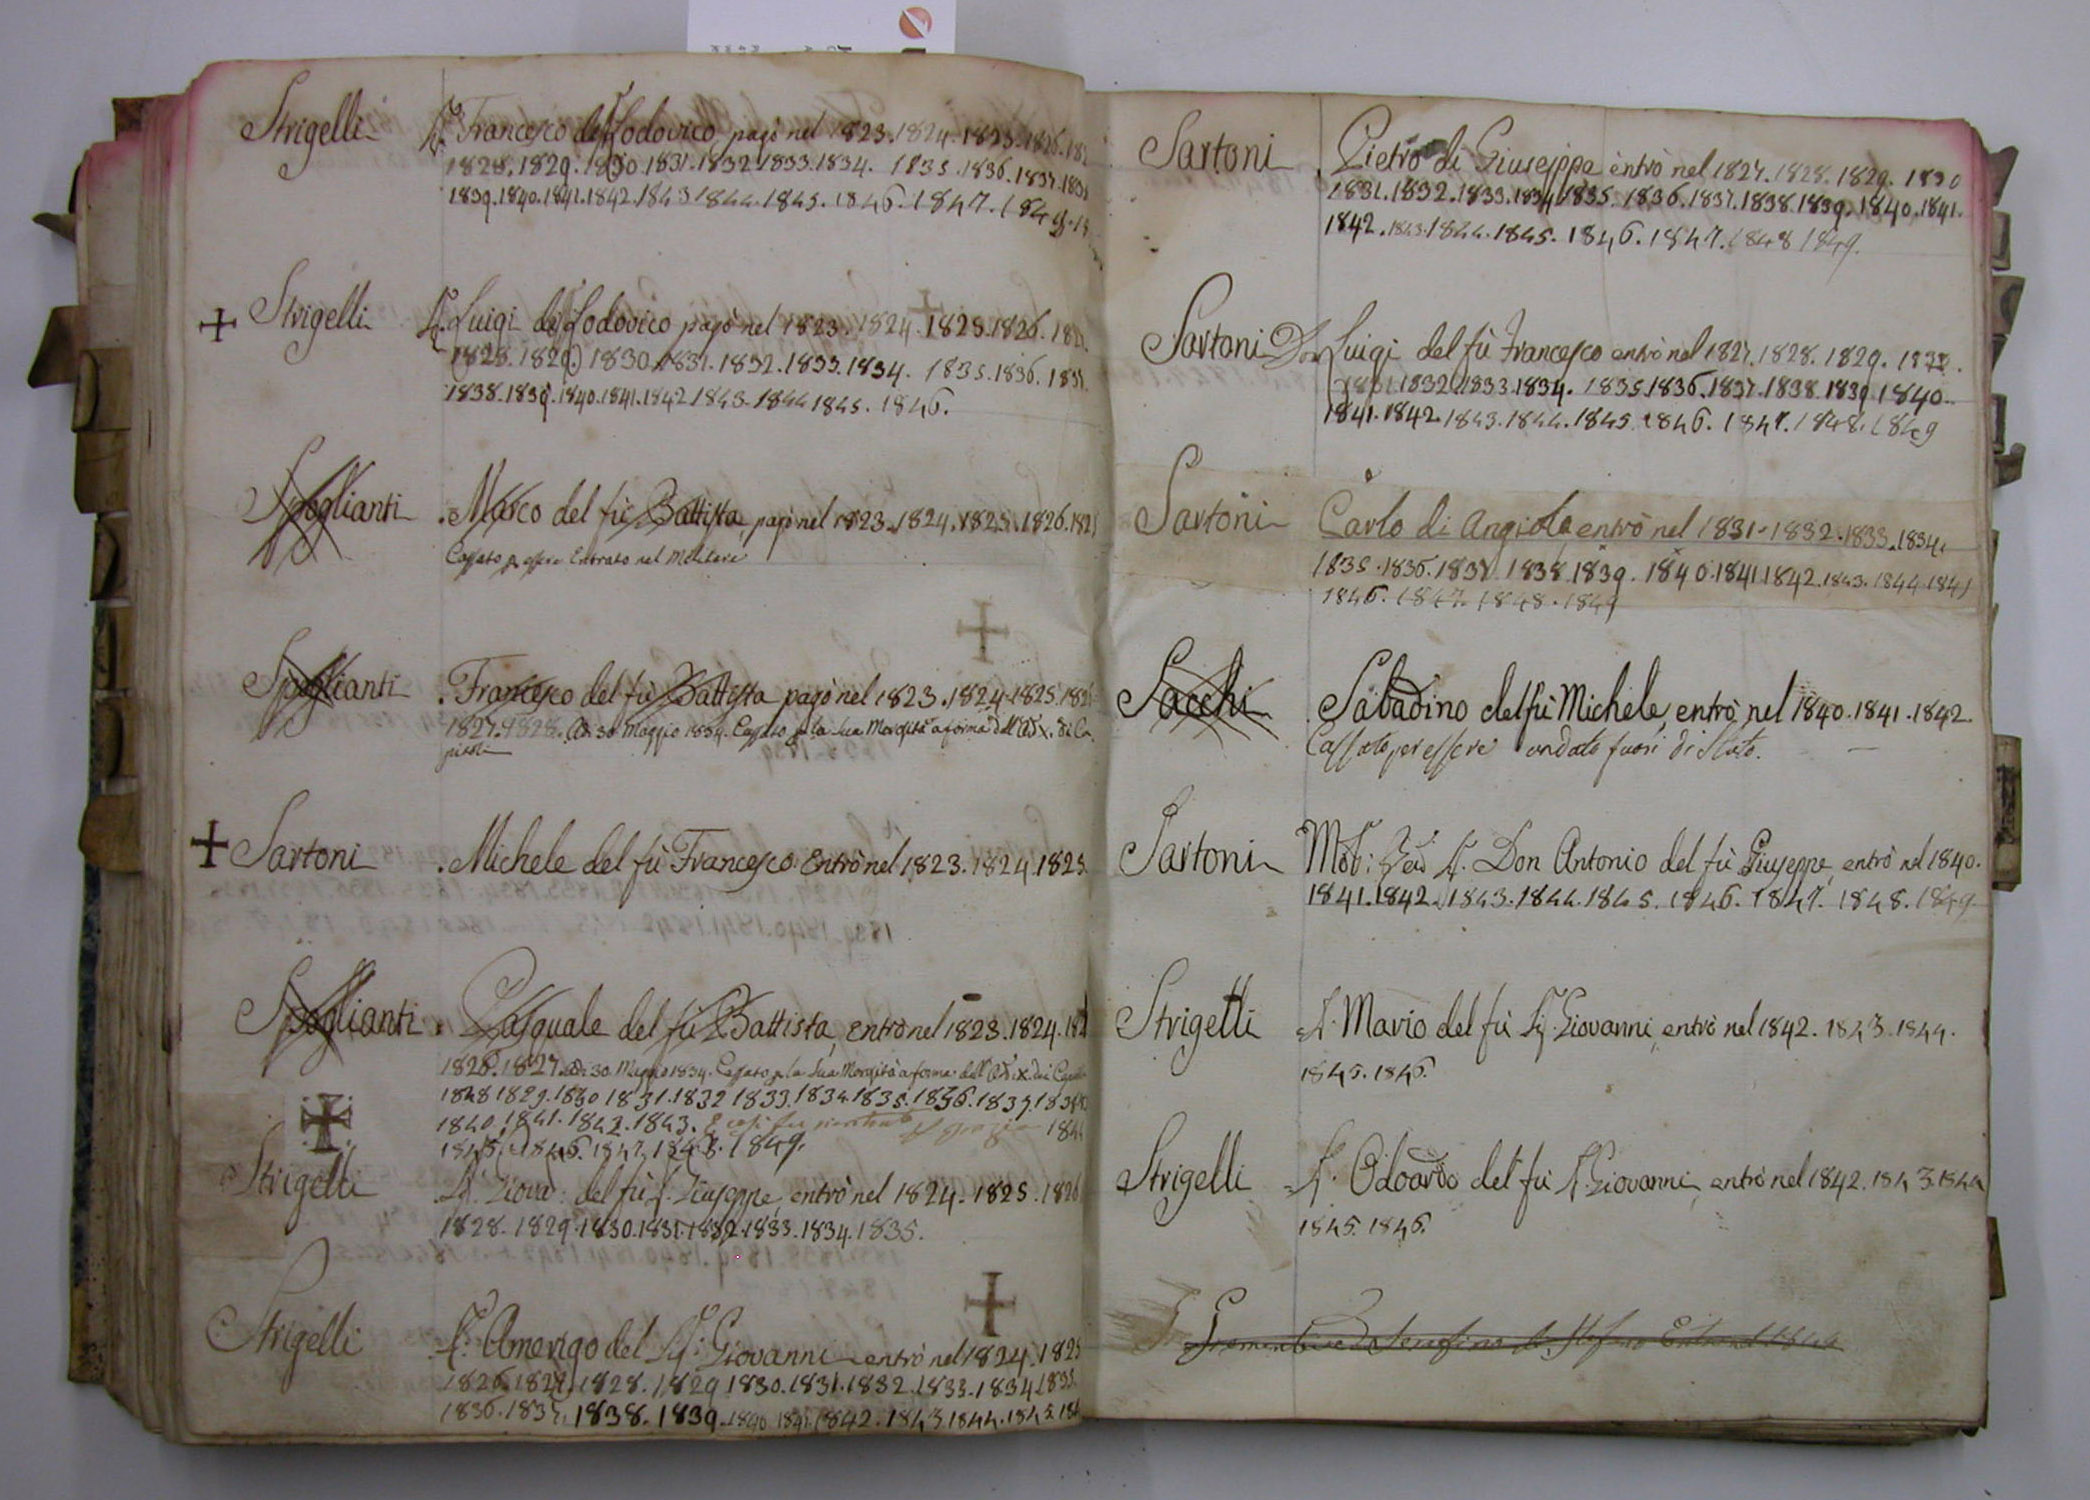 Strigelli S. Francesco del S. Lodovico pagò nel 1823. 1824. 1825. 1826. 182
1828. 1829. 1830. 1831. 1832. 1833. 1834. 1835. 1836. 1837. 1838
1839. 1840. 1841. 1842. 1843. 1844. 1845. 1846. 1847. 1848.
Strigelli S. Luigi del S. Lodovico pagò nel 1823. 1824. 1825. 1826. 1827.
1828. 1829. 1830. 1831. 1832. 1833. 1834. 1835. 1836. 1837.
1838. 1839. 1840. 1841. 1842. 1843. 1844. 1845. 1846.
Spoglianti Marco del fù Battista, pagò nel 1823. 1824. 1825. 1826. 182
Cassato p. essere Entrato nel Militare
Spoglianti Francesco del fù Battista pagò nel 1823. 1824. 1825. 1826
1827. 1828. Adi 30 Maggio 1834. Cassato p. la sua Morosità a forma dell' Ad. X. di Ca
pitoli
Sartoni Michele del fù Francesco Entrò nel 1823. 1824. 1825.
Spoglianti Pasquale del fù Battista, Entrò nel 1823. 1824. 182
1826. 1827. Adi 30. Maggio 1834. Cassato p. la sua Morosità a forma dell' Ad. X. dei
1828. 1829. 1830. 1831. 1832. 1833. 1834. 1835. 1836. 1837. 1838
1840. 1841. 1842. 1843. E così fu 1844
1845. 1846. 1847. 1848. 1849.
Strigelli S. Giova: del fù S. Giuseppe, entrò nel 1824. 1825. 1826
1828. 1829. 1830. 1831. 1832. 1833. 1834. 1835.
Strigelli S. Amerigo del S. Giovanni entrò nel 1824. 1825
1826. 1827. 1828. 1829. 1830. 1831. 1832. 1833. 1834. 1835.
1836. 1837. 1838. 1839. 1840. 1841. 1842. 1843. 1844. 1845. 184
Sartoni Pietro di Giuseppe entrò nel 1827. 1828. 1829. 1830
1831. 1832. 1833. 1834. 1835. 1836. 1837. 1838. 1839. 1840. 1841.
1842. 1843. 1844. 1845. 1846. 1847. 1848. 1849.
Sartoni Don Luigi del fù Francesco entrò nel 1827. 1828. 1829. 1830.
1831. 1832. 1833. 1834. 1835. 1836. 1837. 1838. 1839. 1840.
1841. 1842. 1843. 1844. 1845. 1846. 1847. 1848. 1849
Sartoni Carlo di Angiolo entrò nel 1831. 1832. 1833. 1834.
1835. 1836. 1837. 1838. 1839. 1840. 1841. 1842. 1843. 1844. 1845
1846. 1847. 1848. 1849
Sacchi Sabadino del fù Michele, entrò nel 1840. 1841. 1842.
Cassato per essere andato fuori di Stato.
Sartoni S. Don Antonio del fù Giuseppe, entrò nel 1840.
1841. 1842. 1843. 1844. 1845. 1846. 1847. 1848. 1849
Strigelli S. Mario del fù S. Giovanni, entrò nel 1842. 1843. 1844.
1845. 1846.
Strigelli S. Odoardo del fù S. Giovanni, entrò nel 1842. 1843. 1844
1845. 1846.